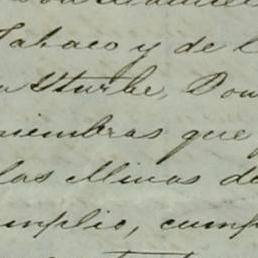 Tabaco y de l
Yturbe, Don
miembras que
las Minas de
umplio, cump